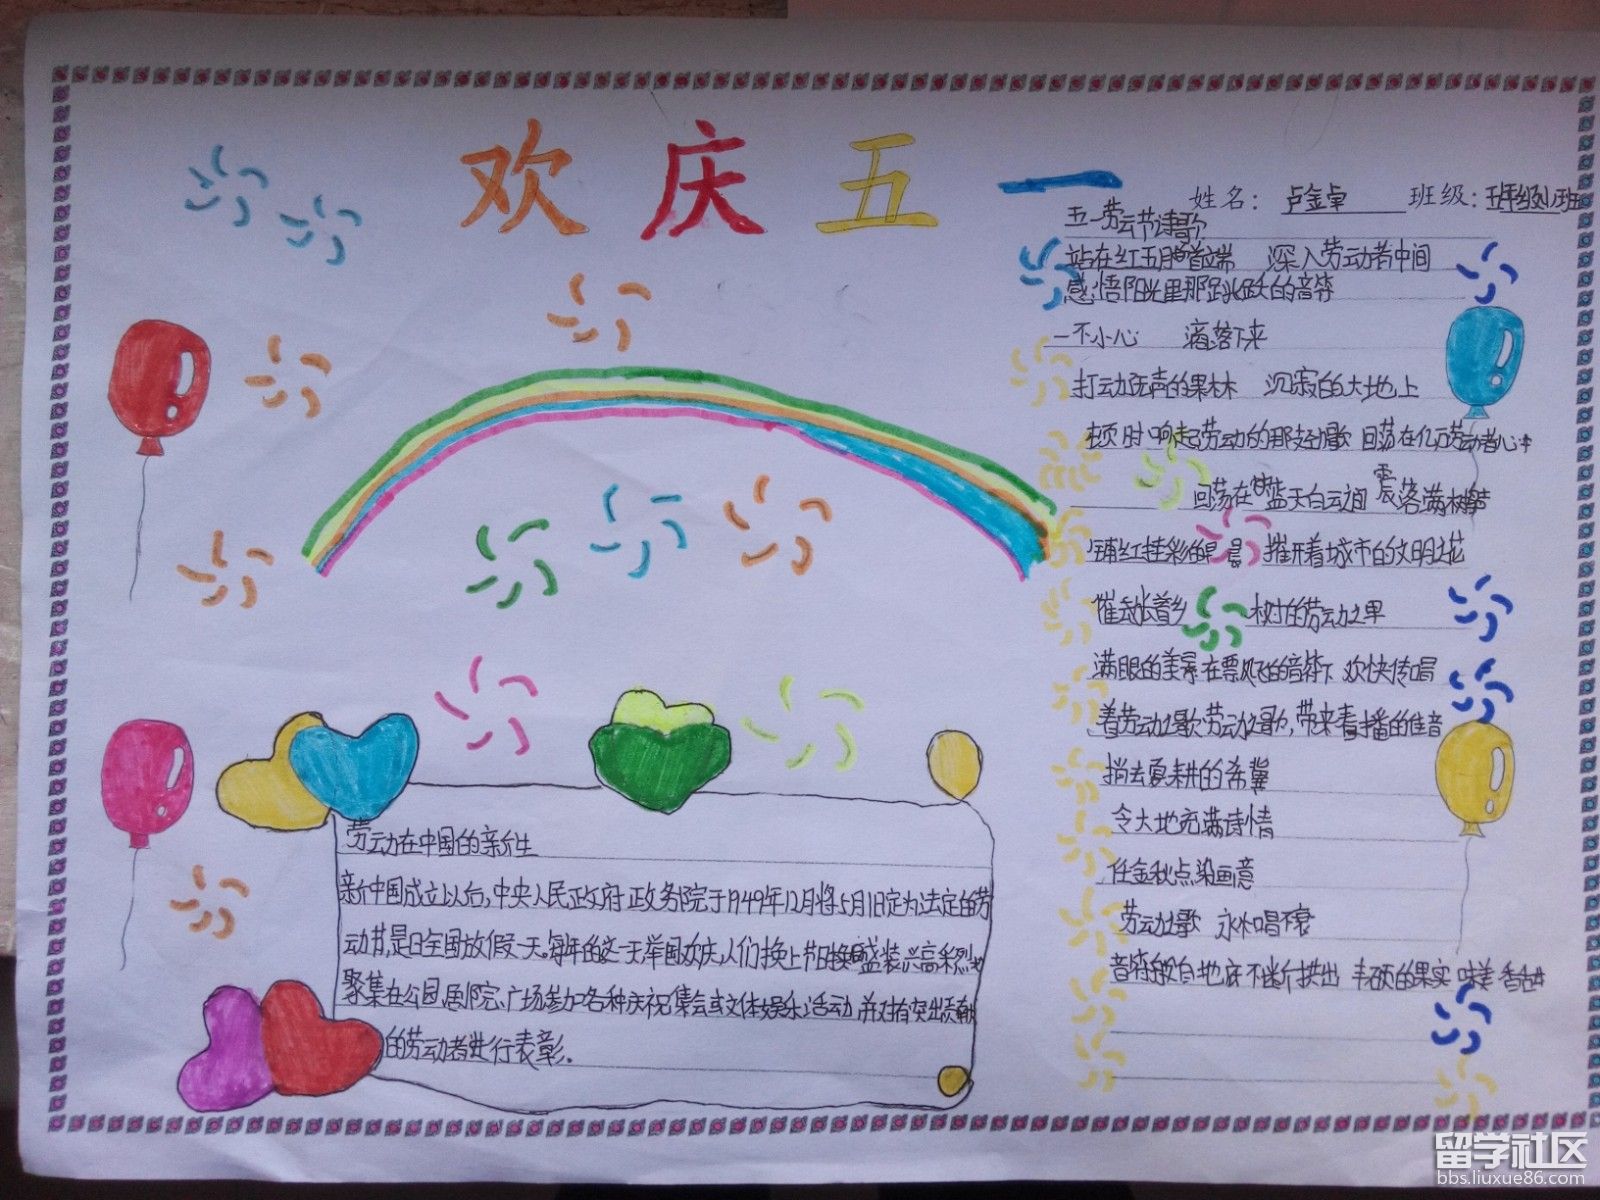 欢庆五一
姓名：卢金卓 班级：五年级
五一劳云节诗歌
站在红五月的首端 深入劳动者中间
感悟阳光里那跳跃的音符
一不小心 滴落下来
打动无声的果林 沉寂的大地上
顿时响起劳动的那支动歌 回荡在亿万劳动者心中
回荡在 蓝天白云间 震落满树
铺红挂彩的 晨 摧开着城市的文明之花
催 着乡 树的劳动之果
满眼的美景在飘飞的音符下 欢快传唱
着劳动之歌，劳动之歌，带来春播的佳音
捎去夏耕的希冀
令大地充满诗情
任金秋点染画意
劳动之歌 永不唱衰
音符般自地底不断拱出 丰硕的果实 味美 香
劳动在中国的新生
新中国成立以后，中央人民政府政务院于1949年12月将5月1日定为法定的劳
动节，是日全国放假一天。每年的这一天，举国欢庆，人们换上节日 盛装，兴高采烈地
聚集在公园、剧院、广场参加各种庆祝集会或文体娱乐活动，并对有突出贡献
的劳动者进行表彰。
留学社区
bbs.liuxue86.com